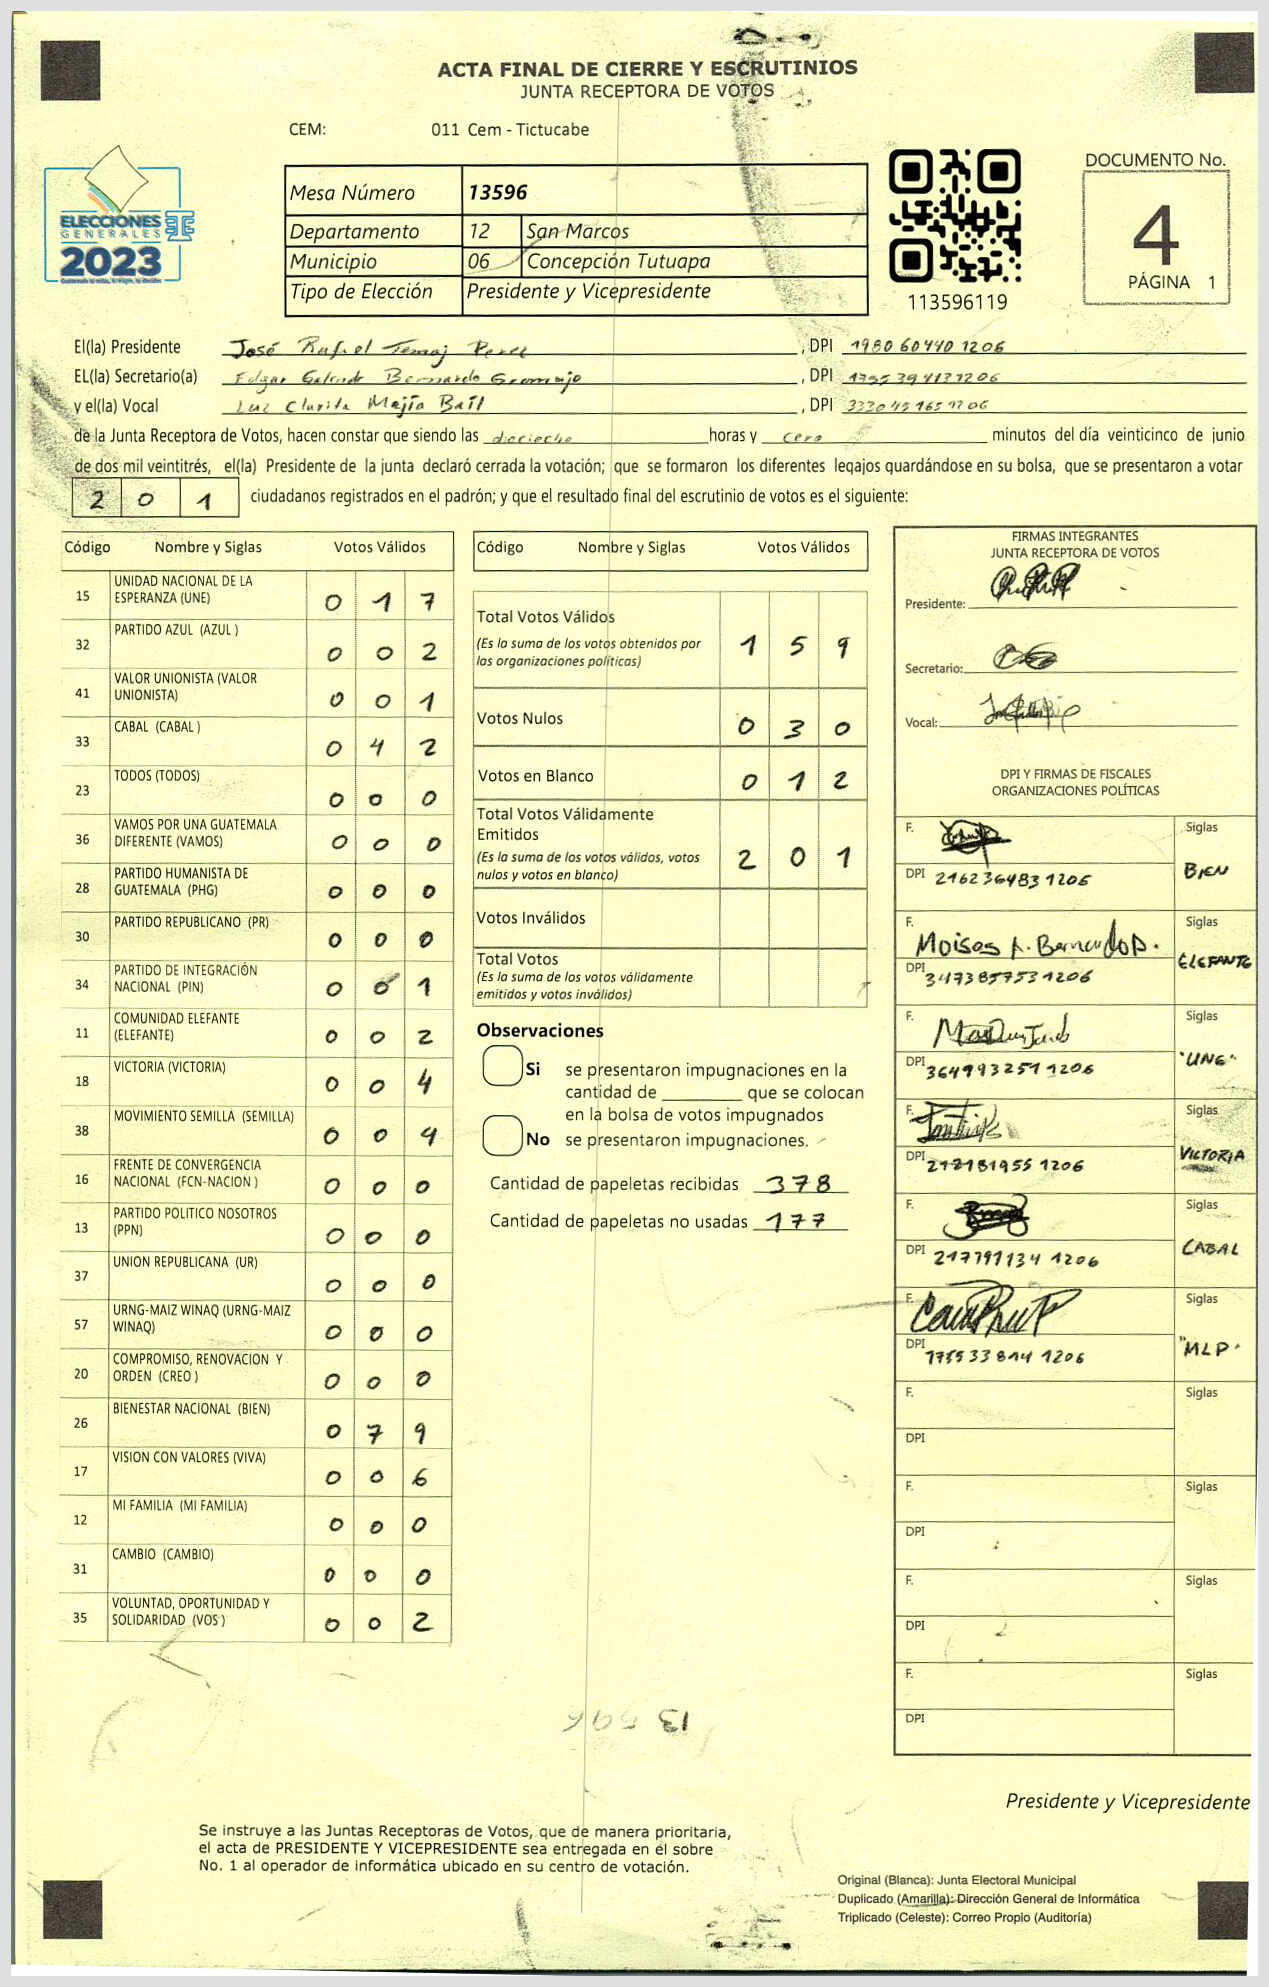 ACTA FINAL DE CIERRE Y ESCRUTINIOS
JUNTA RECEPTORA DE VOTOS
CEM: 011 Cem - Tictucabe
ELECCIONES
GENERALES
2023
Mesa Número 13596
Departamento 12 San Marcos
Municipio 06 Concepción Tutuapa
Tipo de Elección Presidente y Vicepresidente
113596119
DOCUMENTO No.
4
PÁGINA 1
El(la) Presidente José Rafael Temaj Perez, DPI 1980 60440 1206
EL(la) Secretario(a) Edgar Bernardo, DPI
y el(la) Vocal Luz Clarita Mejía Bail, DPI
de la Junta Receptora de Votos, hacen constar que siendo las horas y cero minutos del día veinticinco de junio
de dos mil veintitrés, el(la) Presidente de la junta declaró cerrada la votación; que se formaron los diferentes legajos guardándose en su bolsa, que se presentaron a votar
2 0 1 ciudadanos registrados en el padrón; y que el resultado final del escrutinio de votos es el siguiente:
Código Nombre y Siglas Votos Válidos
15 UNIDAD NACIONAL DE LA
ESPERANZA (UNE) 0 1 7
32 PARTIDO AZUL (AZUL ) 0 0 2
41 VALOR UNIONISTA (VALOR
UNIONISTA) 0 0 1
33 CABAL (CABAL ) 0 4 2
23 TODOS (TODOS) 0 0 0
36 VAMOS POR UNA GUATEMALA
DIFERENTE (VAMOS) 0 0 0
28 PARTIDO HUMANISTA DE
GUATEMALA (PHG) 0 0 0
30 PARTIDO REPUBLICANO (PR) 0 0 0
34 PARTIDO DE INTEGRACIÓN
NACIONAL (PIN) 0 0 1
11 COMUNIDAD ELEFANTE
(ELEFANTE) 0 0 2
18 VICTORIA (VICTORIA) 0 0 4
38 MOVIMIENTO SEMILLA (SEMILLA) 0 0 4
16 FRENTE DE CONVERGENCIA
NACIONAL (FCN-NACION ) 0 0 0
13 PARTIDO POLITICO NOSOTROS
(PPN) 0 0 0
37 UNION REPUBLICANA (UR) 0 0 0
57 URNG-MAIZ WINAQ (URNG-MAIZ
WINAQ) 0 0 0
20 COMPROMISO, RENOVACION Y
ORDEN (CREO ) 0 0 0
26 BIENESTAR NACIONAL (BIEN) 0 7 9
17 VISION CON VALORES (VIVA) 0 0 6
12 MI FAMILIA (MI FAMILIA) 0 0 0
31 CAMBIO (CAMBIO) 0 0 0
35 VOLUNTAD, OPORTUNIDAD Y
SOLIDARIDAD (VOS ) 0 0 2
Código Nombre y Siglas Votos Válidos
Total Votos Válidos
(Es la suma de los votos obtenidos por
las organizaciones políticas) 1 5 9
Votos Nulos 0 3 0
Votos en Blanco 0 1 2
Total Votos Válidamente
Emitidos
(Es la suma de los votos válidos, votos
nulos y votos en blanco) 2 0 1
Votos Inválidos
Total Votos
(Es la suma de los votos válidamente
emitidos y votos inválidos)
Observaciones
Si se presentaron impugnaciones en la
cantidad de ________ que se colocan
en la bolsa de votos impugnados
No se presentaron impugnaciones.
Cantidad de papeletas recibidas 378
Cantidad de papeletas no usadas 177
FIRMAS INTEGRANTES
JUNTA RECEPTORA DE VOTOS
Presidente:
Secretario:
Vocal:
DPI Y FIRMAS DE FISCALES
ORGANIZACIONES POLÍTICAS
F. Siglas
DPI 216236483 1206 BIEN
F. Moises A. Bernardo D. Siglas
DPI 347385753 1206 ELEFANTE
F. Siglas
DPI 364993251 1206 "UNE"
F. Siglas
DPI 212181955 1206 VICTORIA
F. Siglas
DPI 217791134 1206 CABAL
F. Siglas
DPI 1206 "MLP"
F. Siglas
DPI
F. Siglas
DPI
F. Siglas
DPI
F. Siglas
DPI
13 596
Presidente y Vicepresidente
Se instruye a las Juntas Receptoras de Votos, que de manera prioritaria,
el acta de PRESIDENTE Y VICEPRESIDENTE sea entregada en el sobre
No. 1 al operador de informática ubicado en su centro de votación.
Original (Blanca): Junta Electoral Municipal
Duplicado (Amarilla): Dirección General de Informática
Triplicado (Celeste): Correo Propio (Auditoría)